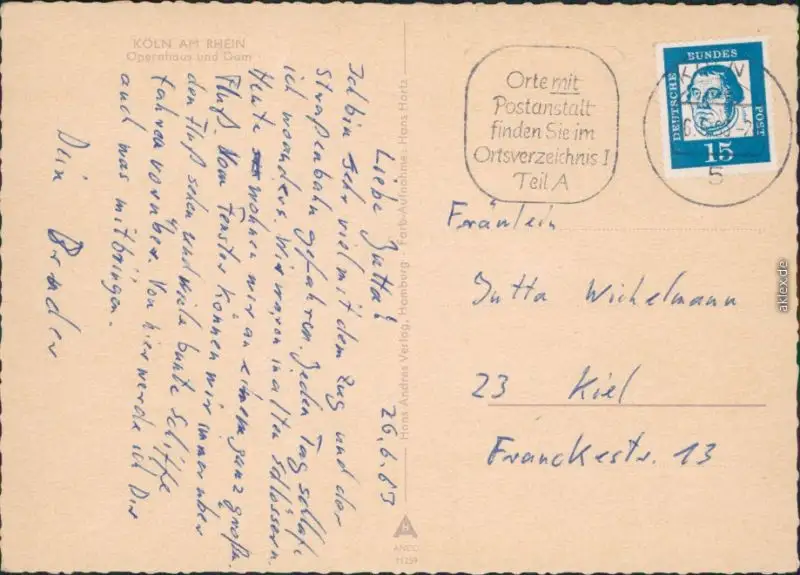 KÖLN AM RHEIN
Opernhaus und Dom
Liebe Jutta! 26.6.63
Ich bin sehr viel mit dem Zug und der
Straßenbahn gefahren. Jeden Tag schlafe
ich woanders. Wir waren in alten Schlössern.
Heute wohnen wir an einem ganz großen
Fluß. Vom Fenster können wir immer über
den Fluß sehen und viele bunte Schiffe
fahren vorüber. Von hier werde ich Dir
auch was mitbringen.
Dein Bruder
Hans Andres Verlag, Hamburg · Farb-Aufnahme: Hans Hartz
ANDO
Orte mit
Postanstalt
finden Sie im
Ortsverzeichnis I
Teil A
DEUTSCHE
BUNDES
POST
15
5
Fräulein
Jutta Wichelmann
23 Kiel
Franckestr. 13
aklex.de